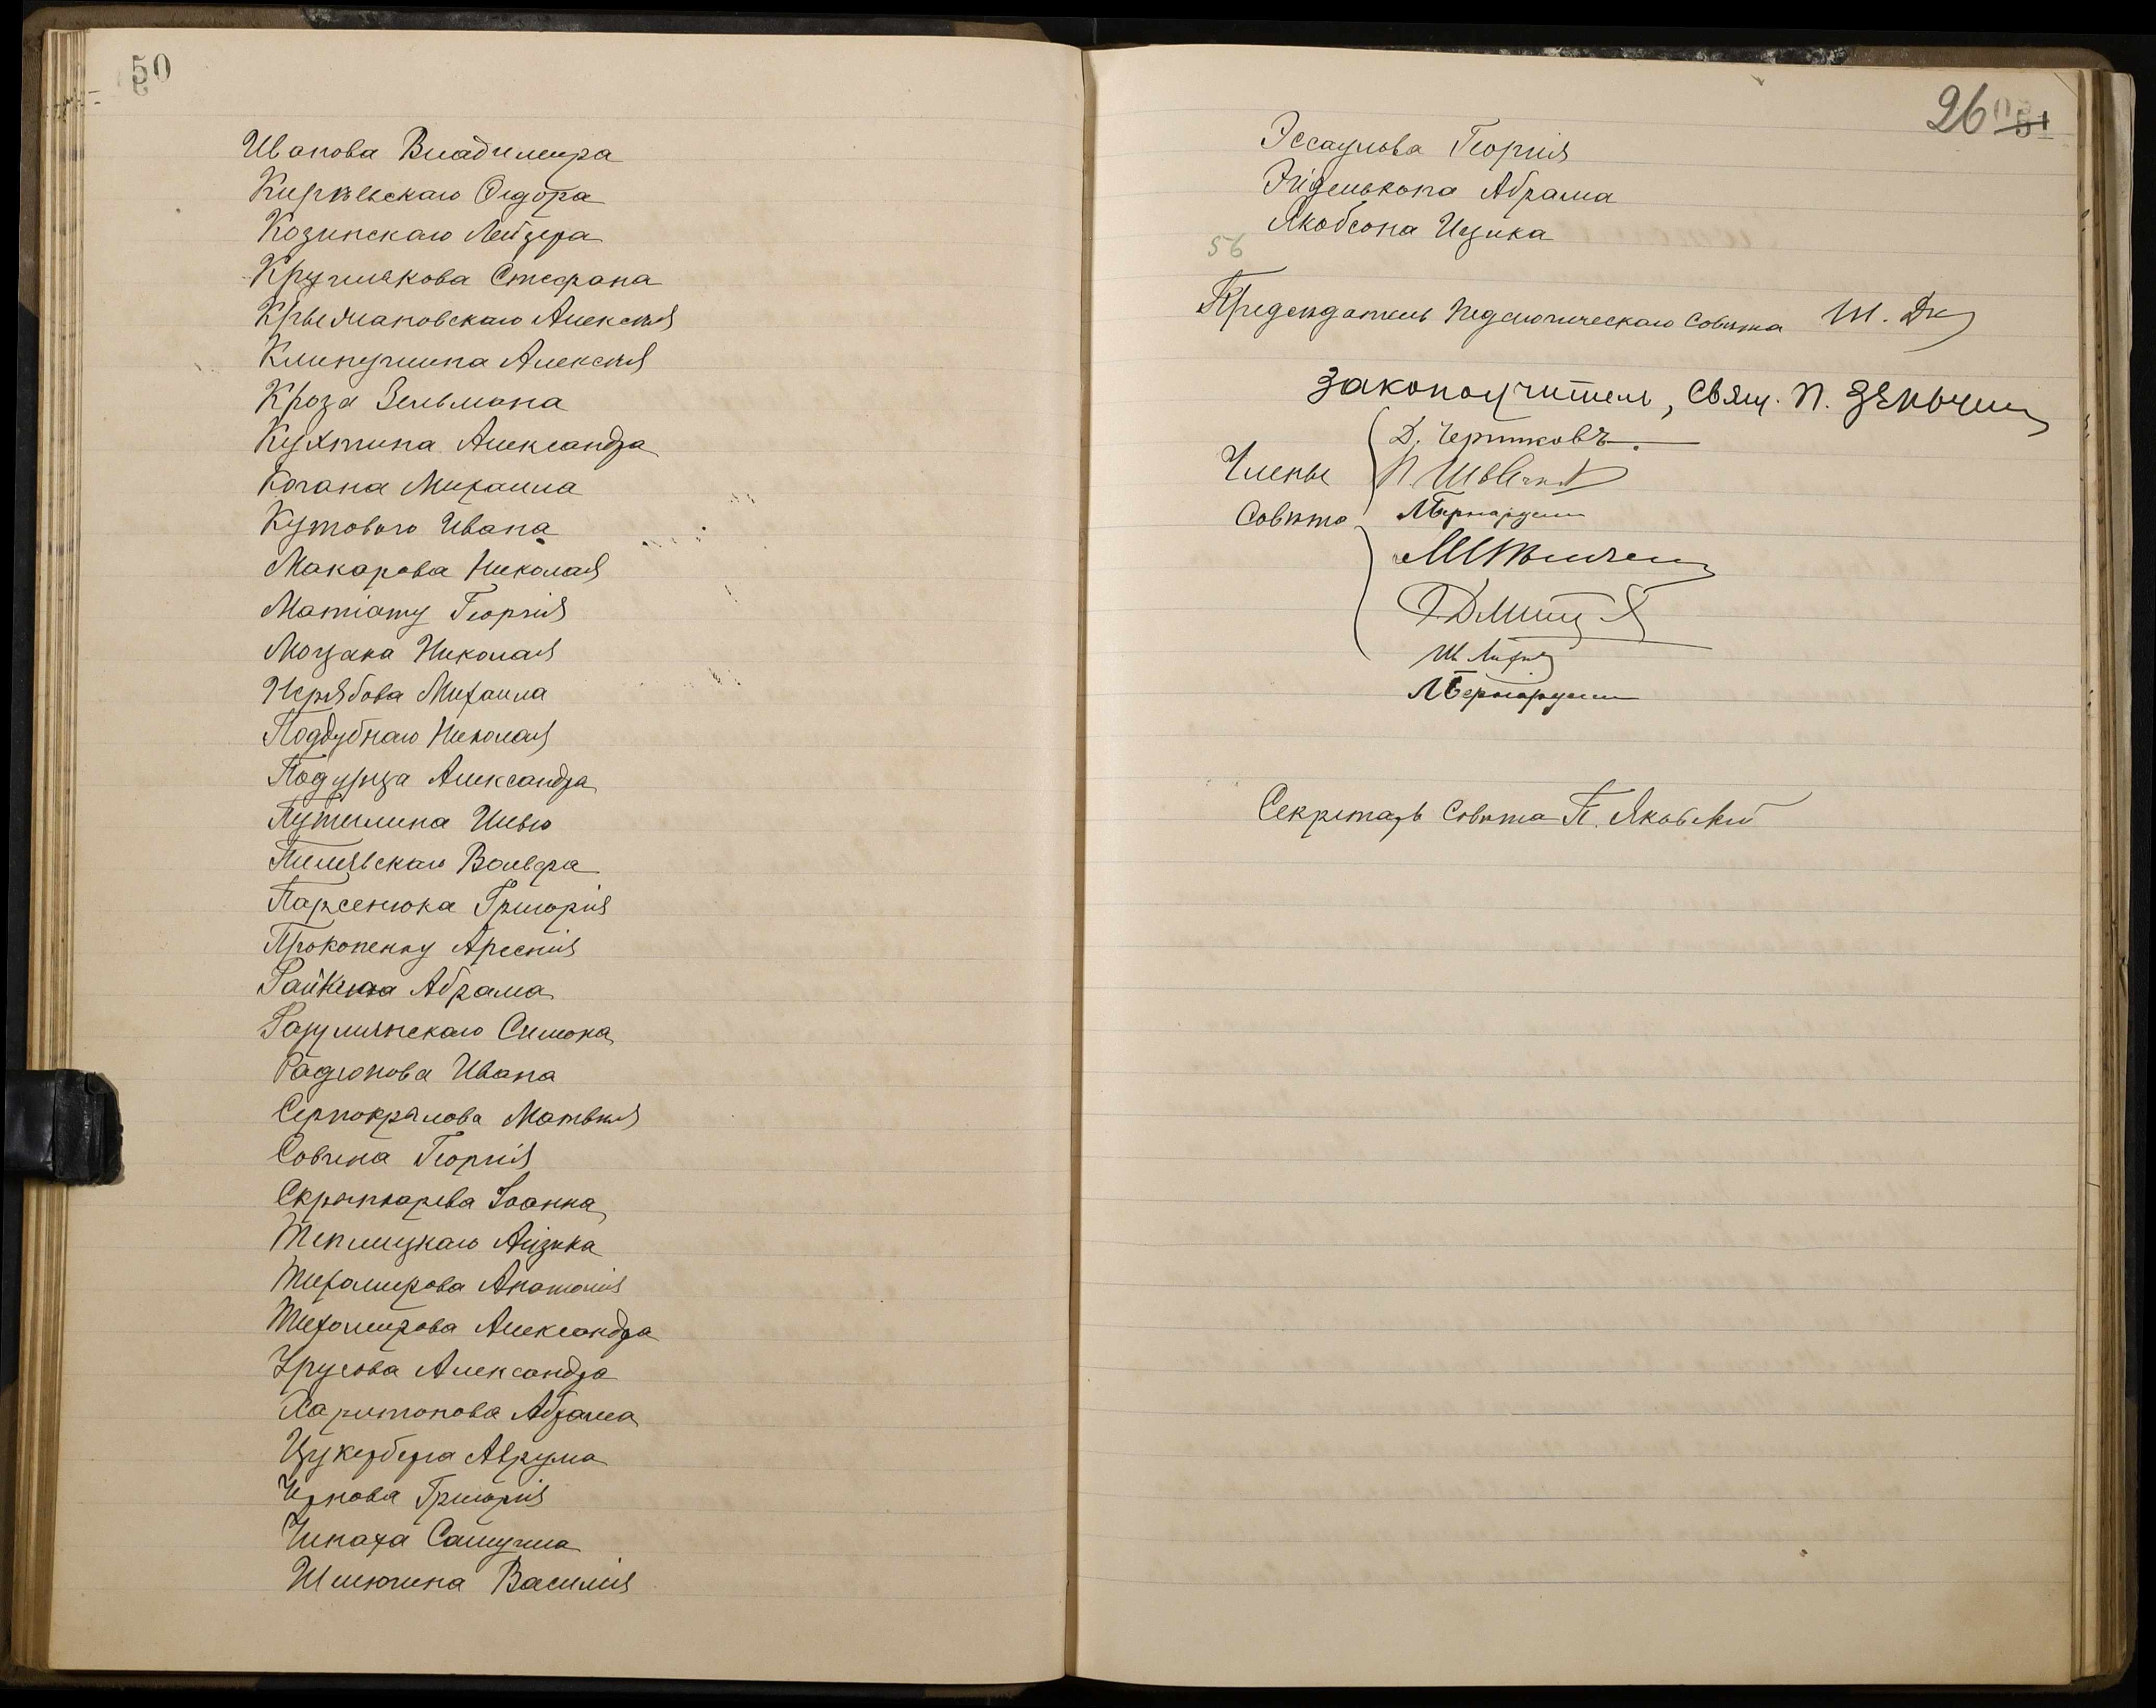 50
Иванова Владимира
Киріевскаго Ѳедора
Козинскаго Лейзера
Кружилякова Стефана
Крыжановскаго Алексѣя
Клипушина Алексѣя
Кроза Зельмана
Кухтина Александра
Когана Михаила
Кутового Ивана
Макарова Николая
Матіашу Георгія
Моцака Николая
Нерябова Михаила
Поддубнаго Николая
Подурца Александра
Путилина Илью
Пилявскаго Вольфа
Парсенюка Григорія
Прокопенку Арсенія
Райхена Абрама
Разумянскаго Симона
Радіонова Ивана
Сернокрылова Матвѣя
Совчена Георгія
Скрыпкарева Іоанна
Теплицкаго Айзика
Тихомирова Анатолія
Тихомирова Александра
Урусова Александра
Харитонова Абрама
Цукерберга Аврума
Чернова Григорія
Чипаха Самуила
Шилюгина Василія
26 51
Эссаулова Георгія
Эйденькопа Абрама
Якобсона Ицика
56
Предсѣдатель Педагогическаго Совѣта
Законоучитель, Свящ. П.
Д. Чертковъ.
Члены
Совѣта
Секретарь Совѣта П.